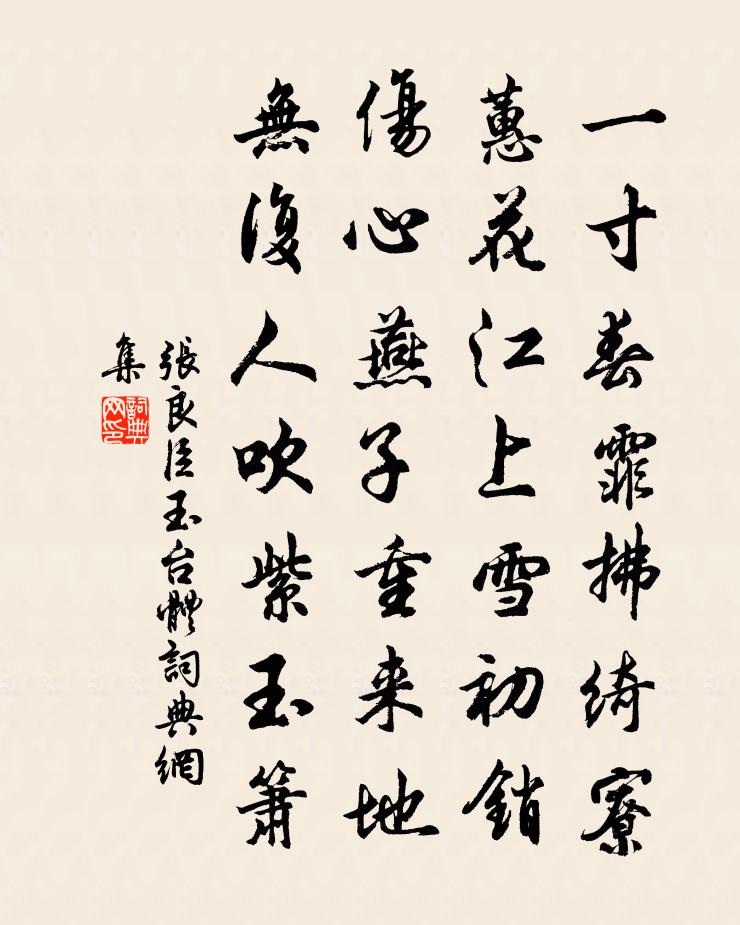 一寸春霏拂綺寮
蕙花江上雪初銷
傷心燕子重来地
無復人吹紫玉簫
張良臣玉台體詞典網
集
詞典网印